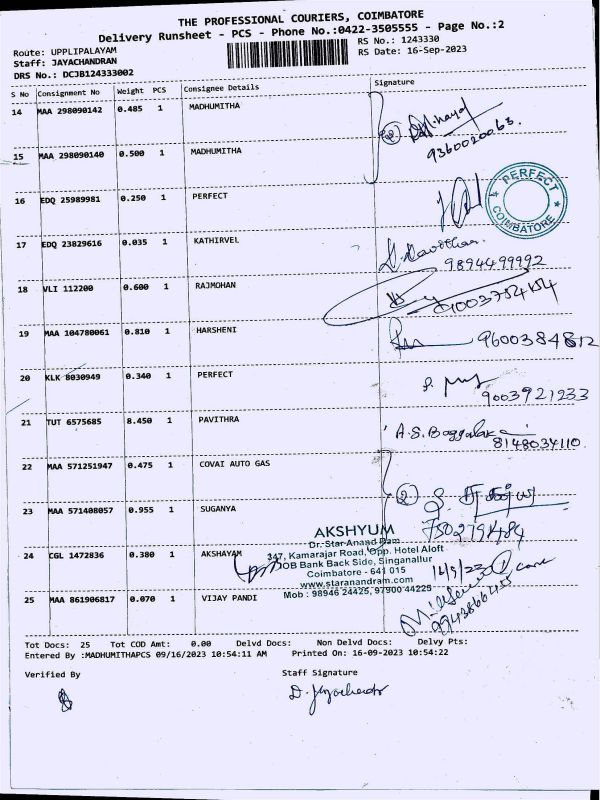 THE PROFESSIONAL COURIERS, COIMBATORE
Delivery Runsheet - PCS - Phone No.:0422-3505555 - Page No.:2
Route: UPPLIPALAYAM
RS No.: 1243330
Staff: JAYACHANDRAN
RS Date: 16-Sep-2023
DRS No.: DCJB124333002
S No Consignment No Weight PCS Consignee Details Signature
14 MAA 298090142 0.485 1 MADHUMITHA
9360020063.
15 MAA 298090140 0.500 1 MADHUMITHA
16 EDQ 25989981 0.250 1 PERFECT
PERFECT
COIMBATORE
17 EDQ 23829616 0.035 1 KATHIRVEL
9894499992
18 VLI 112200 0.600 1 RAJMOHAN
19 MAA 104780061 0.810 1 HARSHENI
9600384812
20 KLK 8030949 0.340 1 PERFECT
9003921233
21 TUT 6575685 8.450 1 PAVITHRA
8148034110.
22 MAA 571251947 0.475 1 COVAI AUTO GAS
23 MAA 571408057 0.955 1 SUGANYA
AKSHYUM
Dr. Star Anand Ram
24 CGL 1472836 0.380 1 AKSHAYAM
347, Kamarajar Road, Opp. Hotel Aloft
IOB Bank Back Side, Singanallur
Coimbatore - 641 015
www.staranandram.com
Mob : 98946 24425, 97900 44225
25 MAA 861906817 0.070 1 VIJAY PANDI
Tot Docs: 25 Tot COD Amt: 0.00 Delvd Docs: Non Delvd Docs: Delvy Pts:
Entered By :MADHUMITHAPCS 09/16/2023 10:54:11 AM Printed On: 16-09-2023 10:54:22
Verified By
Staff Signature